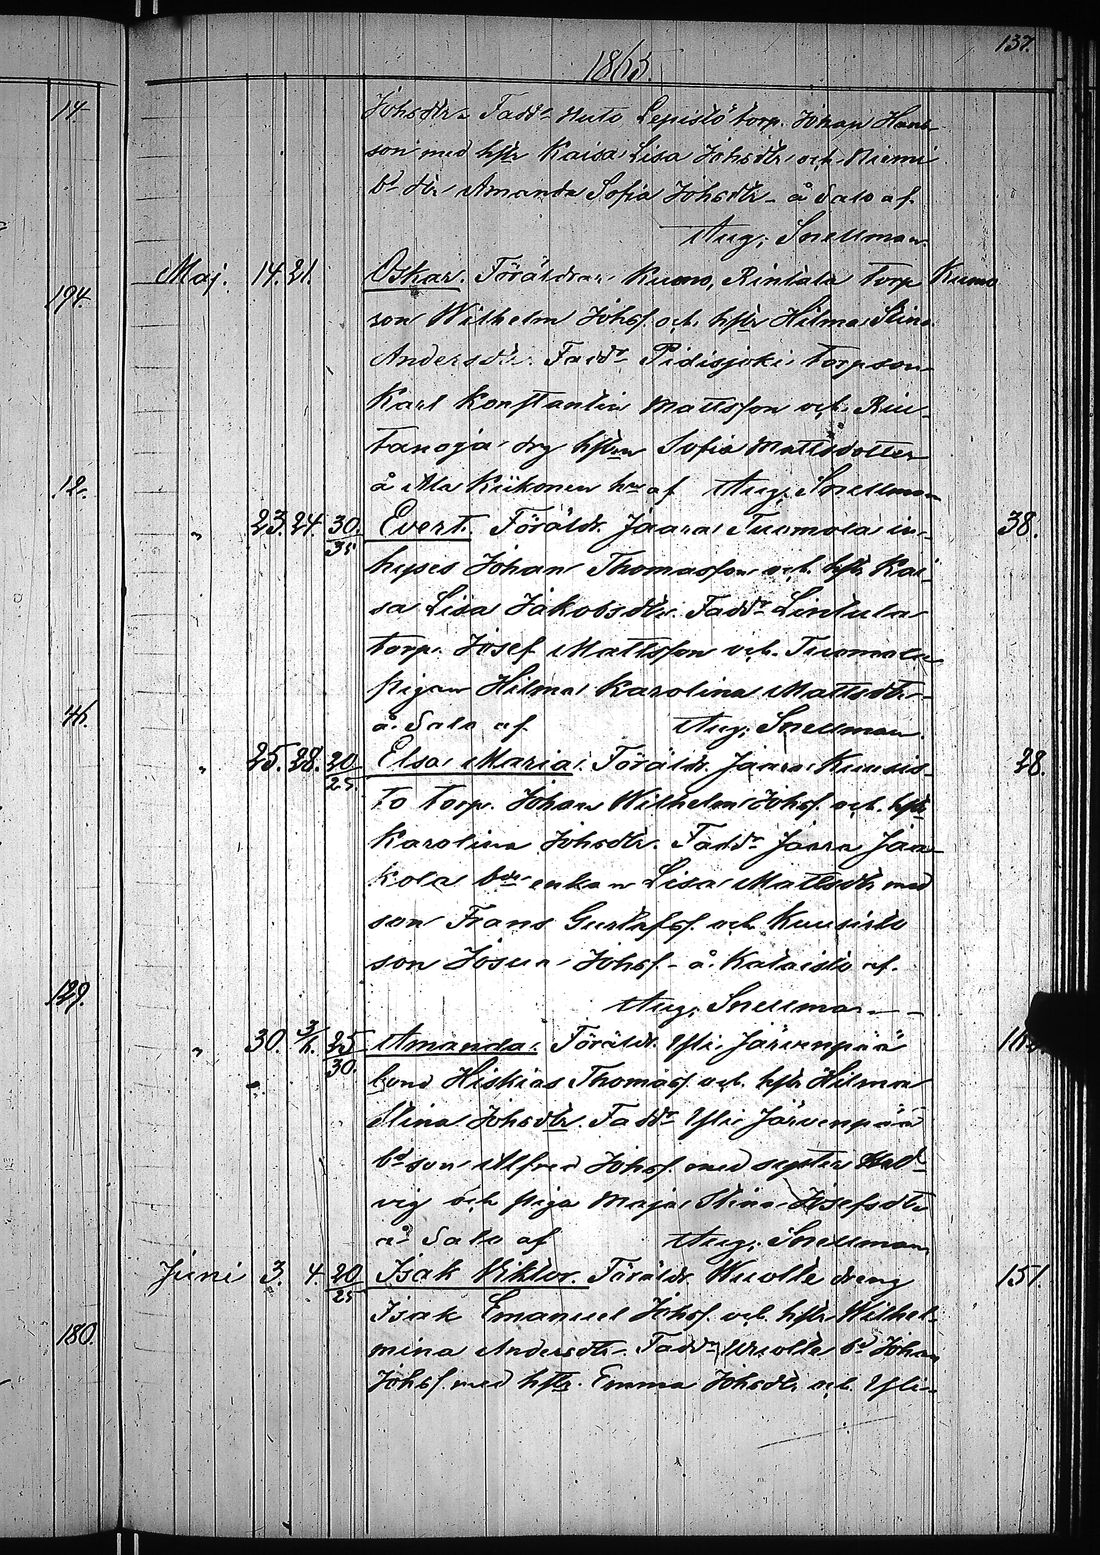 137.
1865.
14
Johsdtr. Fadd. Huto Lepistö torp. Johan Hans-
son med hstr Kaisa Lisa Johsdtr och Niemi
bd dtr Amanda Sofia Johsdtr - å Salo af
Aug. Snellman
Maj. 14. 21. Oskar. Föräldrar Kumo, Rintala torp Kumo
194.
son Wilhelm Johsf. och hstr Hilma Stina
Andersdtr. Fadd. Pidisjoki torpson
Karl Konstantin Mattsson och Rin-
tanoja drg hstrn Sofia Mattsdotter
12.
å Ala Kiikonen hm af Aug. Snellman
" 23. 24. 30/35 Evert. Föräldr. Jaara Tuomola in- 38.
hyses Johan Thomasson och hstr Kai-
sa Lisa Jakobsdtr. Fadd. Lintula
torp. Josef Mattsson och Tuomola
pigan Hilma Karolina Mattsdtr -
46.
å Salo af Aug. Snellman
" 25. 28. 20/25. Elsa Maria. Föräldr. Jaara Kuusis- 28.
to torp. Johan Wilhelm Johsf. och hstr
Karolina Johsdtr. Fadd. Jaara Jaa-
kola bde enkan Lisa Mattsdtr med
son Frans Gustafsf. och Kuusisto
son Josua Johsf - å Kataisto af.
129.
Aug. Snellman
" 30. 3/6. 25/30. Amanda. Föräldr. Yli Järvenpää
bond Hiskias Thomasf. och hstr Hilma
Stina Johsdtr. Fadd. Yli Järvenpää
bd son Alfred Johsf. med syster Hed-
vig och piga Maja Stina Josefsdtr
å Salo af Aug. Snellman
Juni 3. 4. 20/25 Isak Viktor. Föräldr. Wuolle dreng 151.
Isak Emanuel Johsf. och hstr Wilhel-
180.
mina Andersdtr - Fadd. Wuolle bd Johan
Johsf. med hstr. Emma Johsdtr och Yli-